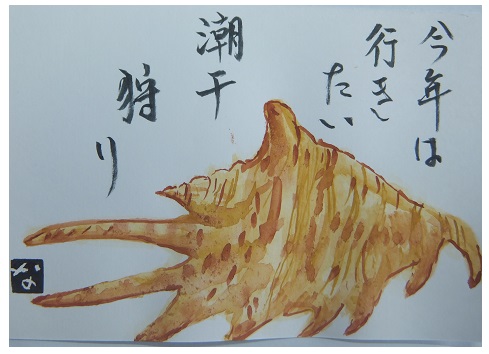 今年は
行きたい
潮干
狩り
な